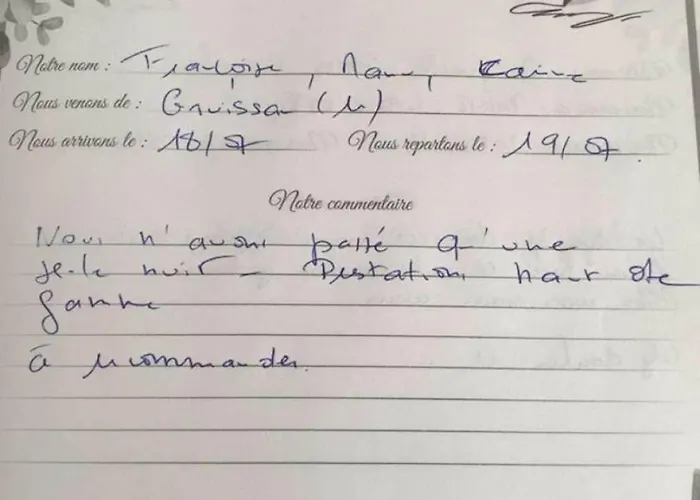 Notre nom : Françoise, Marc, Karine
Nous venons de : Gruissan (11)
Nous arrivons le : 18/07 Nous repartons le : 19/07
Notre commentaire
Nous n'avons passé qu'une
seule nuit - Prestations haut de
gamme
à recommander.